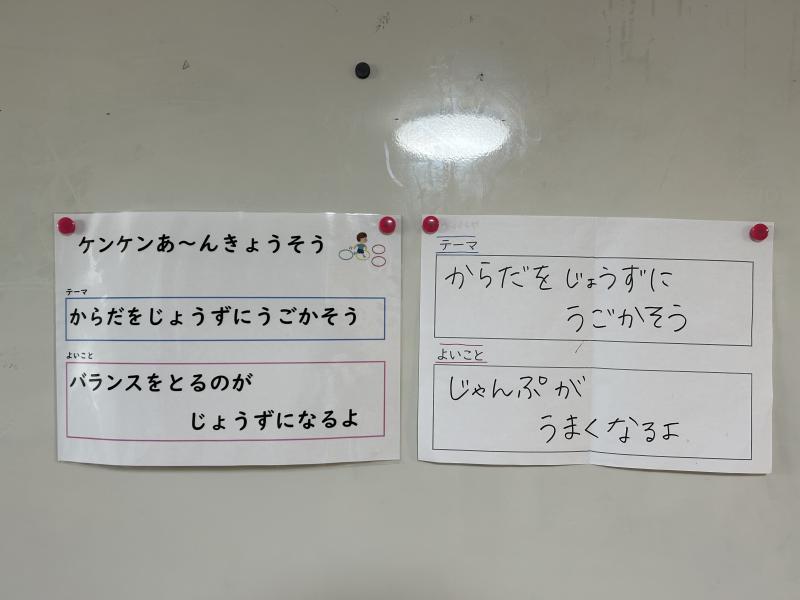 ケンケンあ～んきょうそう
テーマ
からだをじょうずにうごかそう
よいこと
バランスをとるのが
じょうずになるよ
テーマ
からだを じょうずに
うごかそう
よいこと
じゃんぷが
うまくなるよ